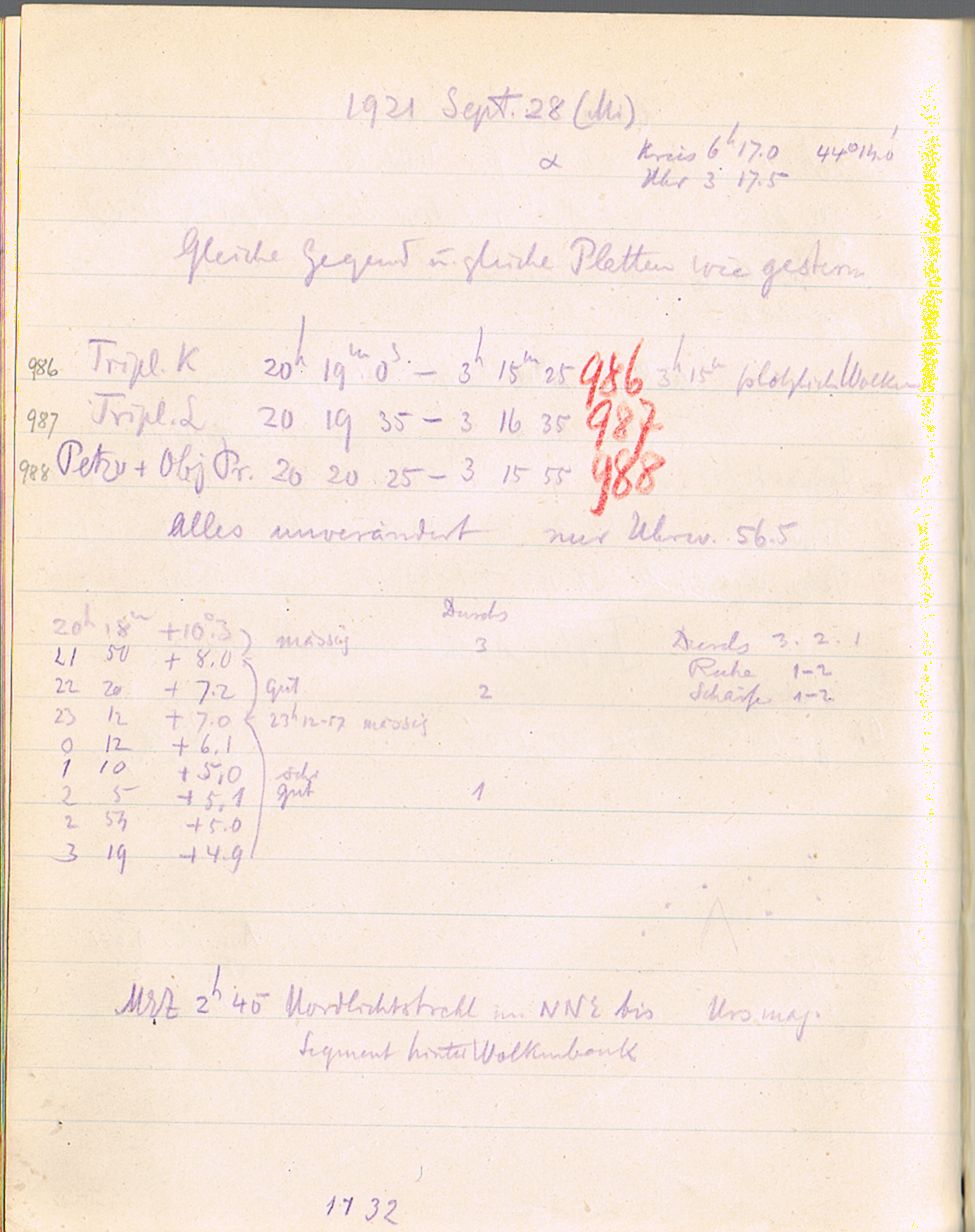 1921 Sept. 28 (Mi)
α Kreis 6h 17.0 44°14.0'
Uhr 3 17.5
Gleiche Gegend u. gleiche Platten wie gestern
986 Tripl. K 20h 19m 0s. — 3h 15m 25 986 3h 15m plötzlich Wolken
987 Tripl. L 20 19 35 — 3 16 35 987
988 Petzv + Obj Pr. 20 20 25 — 3 15 55 988
Alles unverändert nur Uhrw. 56.5
Durchs
20h 18m +10°.3 mässig 3 Durchs 3. 2. 1
21 50 + 8.0 Ruhe 1-2
22 20 + 7.2 gut 2 Schärfe 1-2
23 12 + 7.0 23h 12-57 mässig
0 12 + 6.1
1 10 + 5.0 sehr
2 5 + 5.1 gut 1
2 54 + 5.0
3 19 + 4.9
MEZ 2h 45 Nordlichtstrahl im NNE bis Urs. maj.
Segment hinter Wolkenbank
1732